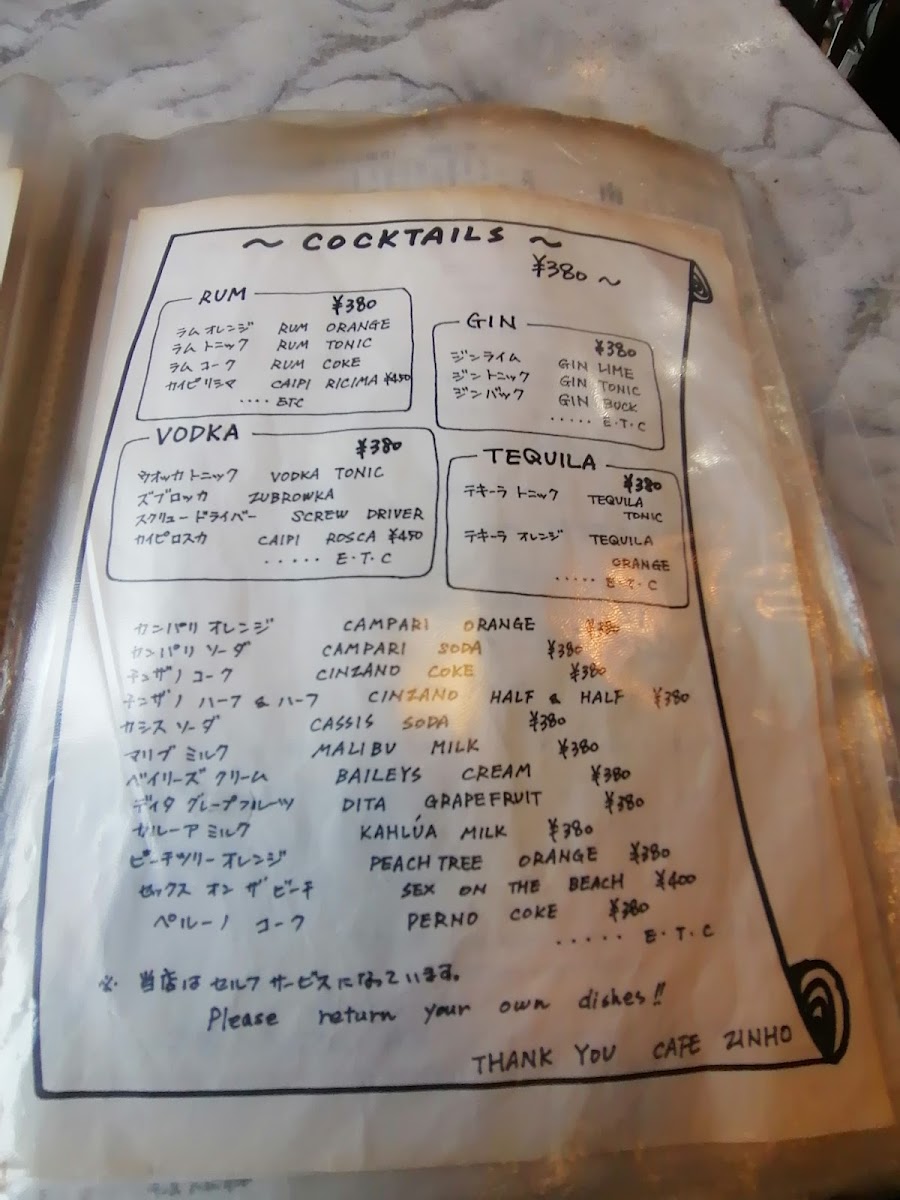 ~ COCKTAILS ~
¥380 ~
RUM
¥380
ラム オレンジ RUM ORANGE
ラム トニック RUM TONIC
ラム コーク RUM COKE
カイピリシマ CAIPI RICIMA ¥450
.... ETC
GIN
¥380
ジンライム GIN LIME
ジントニック GIN TONIC
ジンバック GIN BUCK
..... E.T.C
VODKA
¥380
ウオッカ トニック VODKA TONIC
ズブロッカ ZUBROWKA
スクリュー ドライバー SCREW DRIVER
カイピロスカ CAIPI ROSCA ¥450
..... E.T.C
TEQUILA
¥380
テキーラ トニック TEQUILA
TONIC
テキーラ オレンジ TEQUILA
ORANGE
..... E.T.C
カンパリ オレンジ CAMPARI ORANGE ¥380
カンパリ ソーダ CAMPARI SODA ¥380
チンザノ コーク CINZANO COKE ¥380
チンザノ ハーフ & ハーフ CINZANO HALF & HALF ¥380
カシス ソーダ CASSIS SODA ¥380
マリブ ミルク MALIBU MILK ¥380
ベイリーズ クリーム BAILEYS CREAM ¥380
ディタ グレープフルーツ DITA GRAPEFRUIT ¥380
カルーア ミルク KAHLÚA MILK ¥380
ピーチツリー オレンジ PEACH TREE ORANGE ¥380
セックス オン ザ ビーチ SEX ON THE BEACH ¥400
ペルーノ コーク PERNO COKE ¥380
..... E.T.C
※ 当店は セルフ サービスになっています。
Please return your own dishes!!
THANK YOU CAFE ZINHO